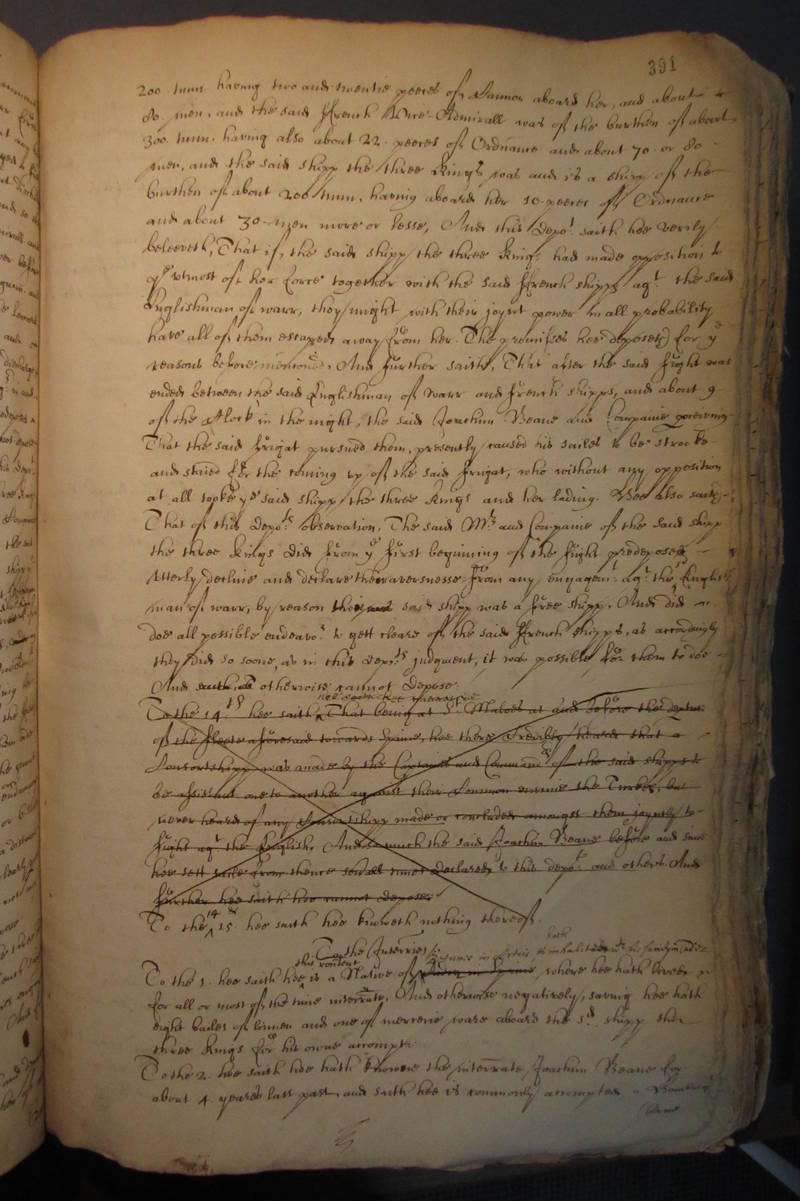 391
200. tunn. having two and twentie peeces of Cannon aboard her, and about
80. men, and the said ffrench Vice Admirall was of the burthen of about
300. tunn. having also about 22. peeces of Ordnance and about 70. or 80
men, and the said shipp the three Kings was and is a shipp of the
burthen of about 200 tunn, having aboard her 10. peeces of Ordnance
and about 30. men more or lesse, And this depot. saith hee verily
beleeveth, That if, the said shipp the three Kings had made opposition to
ye utmost of her force together with the said ffrench shipps agt. the said
Englishman of warr, they might with their joynt power in all probability
have all of them escaped away from her. The premisses hee deposeth for ye
reasons before menconed. And further saith, That after the said fight was
ended between the said Englishman of warr and french shipps, and about 9
of the Clock in the night, the said Joachim Beane and Companie perceiving
That the said frigat pursued them, presently caused his sailes to be strooke
and staied for the coming up of the said frigat, who without any opposition
at all tooke ye said shipp the three Kings and her lading. Hee also saith
That of this depots. observation, The said Mr. and Companie of the said shipp
the three Kings did from ye first beginning of the fight predeposed
utterly decline and declare their aversnesse from any engagemt. agt. the sd. English
man of warr, by reason their said shipp was a free shipp, And did
doe all possible endeavor. to gett cleare of the said ffrench shipps, as accordingly
they did so soone, as in this depots. judgment, it was possible for them to doe
And otherwise cannot depose.
To the 14th. hee saith That being at St. Maloes at and before the depture
of the fleete aforesaid towards Spaine, hee there credibly heard that a
Consortshipp was made by the Captaines and Command of the said shipps to
be assistant one to another against their Common enimie the Turkes, but
never heard of any Consortshipp made or concluded amongst them joyntly to
fight agt. the English. And so much the said Joachim Beane before and since
hee sett saile from thence severall times declared to this depot. and others. And
further hee saith hee cannot depose
To the 14 15 hee saith hee knoweth nothing thereof.
To the Interries.
this rendent
To the 1. hee saith hee is a Native of where hee hath lived
for all or most of the time interrate, And otherwise negatively, saving hee hath
eight bailes of linnen and one of mercerie ware aboard the sd. shipp the
three Kings for his owne accompt.
To the 2. hee saith hee hath knowne the interrate Joachim Beane for
about 4. yeares last past, and saith hee is commonly accompted a